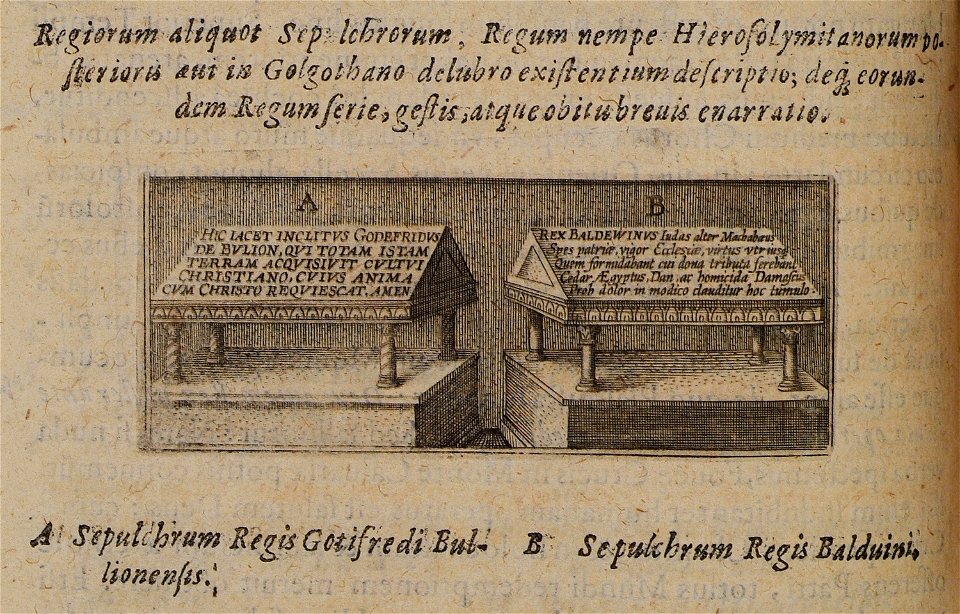 Regiorum aliquot Sepulchrorum, Regum nempe Hierosolymitanorum po-
sterioris aui in Golgothano delubro existentium descriptio; deq́ eorun-
dem Regum serie, gestis, atque obitu breuis enarratio.
A
HIC IACET INCLITVS GODEFRIDVS
DE BVLION, QVI TOTAM ISTAM
TERRAM ACQVISIVIT CVLTVI
CHRISTIANO, CVIVS ANIMA
CVM CHRISTO REQVIESCAT, AMEN
B
REX BALDEWINVS Iudas alter Machabeus
Spes patriæ, vigor Ecclesiæ, virtus vtriusq
Quem formidabant cui dona tributa ferebant
Cedar, Ægyptus, Dan, ac homicida Damascus
Proh dolor in modico clauditur hoc tumulo.
A Sepulchrum Regis Gotifredi Bul-
lionensis.
B Sepulchrum Regis Balduini.